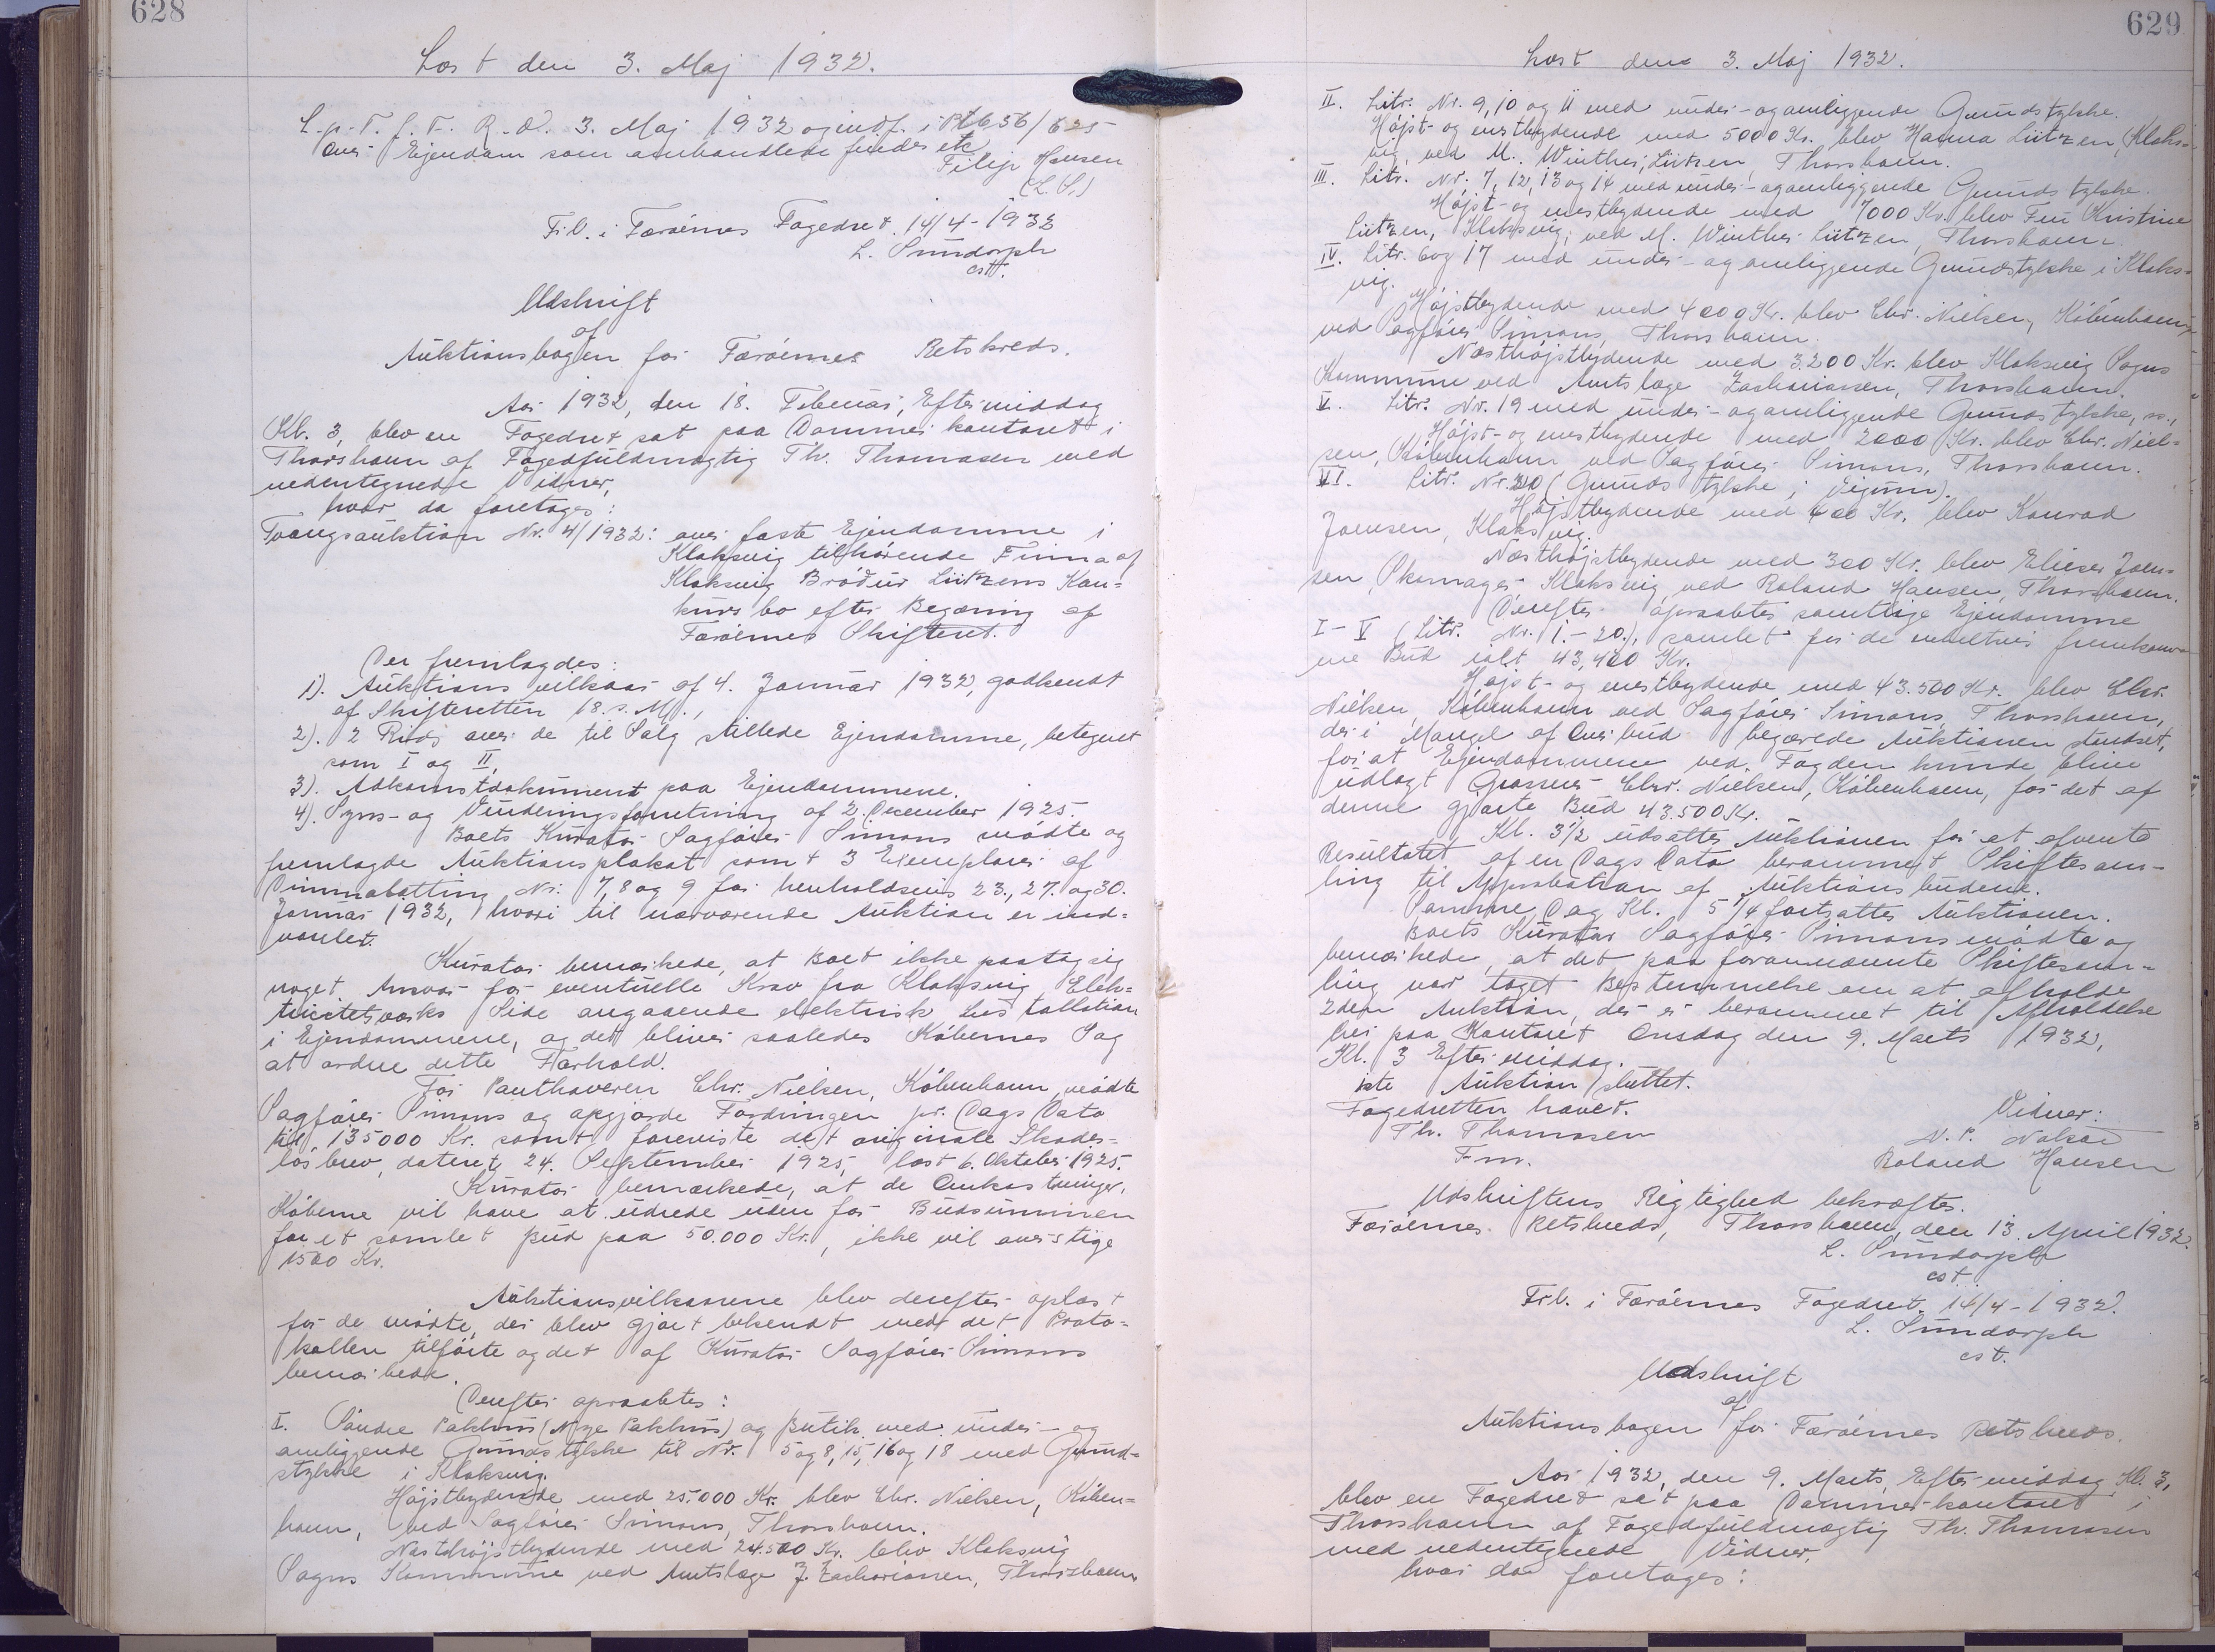 628
Læst den 3. Maj 1932.
L.p.T.f.F. R.d. 3. Maj 1932 og indf. i
over Ejendom som anhandlede findes etc
Filip Hansen
(L.S.)
Frl. i Færöernes Fogedret. 14/4-1932
L. Sundorph
cst.
Udskrift
af
Auktionsbogen for Færöernes Retskreds.
Aar 1932, den 18. Februar, Eftermiddag
Kl. 3, blev en Fogedret sat paa Dommerkontoret i
Thorshavn af Fogedfuldmægtig Th. Thomasen med
nedentegnede Vidner,
hvor da foretoges:
Tvangsauktion Nr. 4/1932: over faste Ejendomme i
Klaksvig tilhörende Firma af
Klaksvig Bródur Lützens Kon-
kurs bo efter Begæring af
Færöernes Skifteret.
Der fremlagdes:
1). Auktionsvilkaar af 4. Januar 1932, godkendt
af Skifteretten 18. s. M.,
2). 2 Rids over de til Salg stillede Ejendomme, betegnet
som I og II,
3). Adkomstdokument paa Ejendommene.
4). Syns- og Vurderingsforretning af 2. December 1925.
Boets Kurator Sagförer Simons mödte og
fremlagde Auktionsplakat samt 3 Exemplarer af
Dimmalætting Nr. 7, 8 og 9 for henholdsvis 23., 27. og 30.
Januar 1932, hvori til nærværende Auktion er ind-
varslet.
Kurator bemærkede, at Boet ikke paatog sig
noget Ansvar for eventuelle Krav fra Klaksvig Elek-
tricitetsværks Side angaaende elektrisk Installation
i Ejendommene, og det bliver saaledes Köbernes Sag
at ordne dette Forhold.
For Panthaveren Chr. Nielsen, Köbenhavn, mödte
Sagförer Simons og opgjorde Fordringen pr. Dags Dato
til 135000 Kr. samt foreviste det originale Skades-
lösbrev, dateret 24. September 1925, læst 6. Oktober 1925.
Kurator bemærkede, at de Omkostninger,
Köberne vil have at udrede uden for Budsummen
for et samlet Bud paa 50.000 Kr., ikke vil overstige
1500 Kr.
Auktionsvilkaarene blev derefter oplæst
for de mödte, der blev gjort bekendt med det Proto-
kollen tilförte og det af Kurator Sagförer Simons
bemærkede.
Derefter opraabtes:
I. Söndre Pakhus (Nye Pakhus) og Butik med under- og
omliggende Grundstykke til Nr. 5 og 8, 15, 16 og 18 med Grund-
stykke i Klaksvig.
Höjstbydende med 25.000 Kr. blev Chr. Nielsen, Köben-
havn, ved Sagförer Simons, Thorshavn.
Næsthöjstbydende med 24.500 Kr. blev Klaksvig
Sogns Kommune ved Amtslæge J. Zachariasen, Thorshavn
629
Læst den 3. Maj 1932.
II. Litr. Nr. 9, 10 og 11 med under- og omliggende Grundstykke.
Höjst- og enestbydende med 5000 Kr. blev Hanna Lützen, Klaks-
vig, ved M. Winther-Lützen, Thorshavn.
III. Litr. Nr. 7, 12, 13 og 14 med under- og omliggende Grundstykke.
Höjst- og enestbydende med 7000 Kr. blev Fru Kristine
Lützen, Klaksvig, ved M. Winther Lützen, Thorshavn.
IV. Litr. 6 og 17 med under- og omliggende Grundstykke i Klaks-
vig.
Höjstbydende med 4000 Kr. blev Chr. Nielsen, Köbenhavn,
ved Sagförer Simons, Thorshavn.
Næsthöjstbydende med 3.200 Kr. blev Klaksvig Sogns
Kommune ved Amtslæge Zachariasen, Thorshavn.
V. Litr. Nr. 19 med under- og omliggende Grundstykke,
Höjst- og enestbydende med 2000 Kr. blev Chr. Niel-
sen, Köbenhavn ved Sagförer Simons, Thorshavn.
VI. Litr. Nr. 20 (Grundstykke i Vigum).
Höjstbydende med 400 Kr. blev Konrad
Joensen, Klaksvig.
Næsthöjstbydende med 300 Kr. blev Elieser Joen-
sen, Skomager Klaksvig, ved Roland Hansen, Thorshavn.
Derefter opraabtes samtlige Ejendomme
I-V (Litr. Nr. 1.-20.), samlet for de enkeltvis fremkom-
ne Bud ialt 43,400 Kr.
Höjst- og enestbydende med 43.500 Kr. blev Chr.
Nielsen, Köbenhavn ved Sagförer Simons, Thorshavn,
der i Mangel af Overbud begærede Auktionen sluttet,
for at Ejendommene ved Fogden kunde blive
udlagt Grosserer Chr. Nielsen, Köbenhavn, for det af
denne gjorte Bud 43.500 Kr.
Kl. 3½ udsattes Auktionen for at afvente
Resultatet af en Dags Dato berammet Skiftesam-
ling til Approbation af Auktionsbudene.
Samme Dag Kl. 5¼ fortsattes Auktionen.
Boets Kurator Sagförer Simons mödte og
bemærkede, at det paa forannævnte Skiftesam-
ling var taget Bestemmelse om at afholde
2den Auktion, der er berammet til Afholdelse
her paa Kontoret Onsdag den 9. Marts 1932,
Kl. 3 Eftermiddag.
1ste Auktion sluttet.
Fogedretten hævet.
Th. Thomasen
Fm.
Vidner:
N. P. Nolsøe
Roland Hansen
Udskriftens Rigtighed bekræftes.
Færöernes Retskreds, Thorshavn, den 13. April 1932.
L. Sundorph
cst.
Frl. i Færöernes Fogedret, 14/4-1932.
L. Sundorph
cst.
Udskrift
af
Auktionsbogen for Færöernes Retskreds.
Aar 1932, den 9. Marts, Eftermiddag Kl. 3,
blev en Fogedret sat paa Dommerkontoret i
Thorshavn af Fogedfuldmægtig Th. Thomasen
med nedentegnede Vidner,
hvor da foretoges: